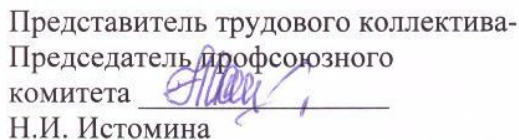 Представитель трудового коллектива-
Председатель профсоюзного
комитета
Н.И. Истомина